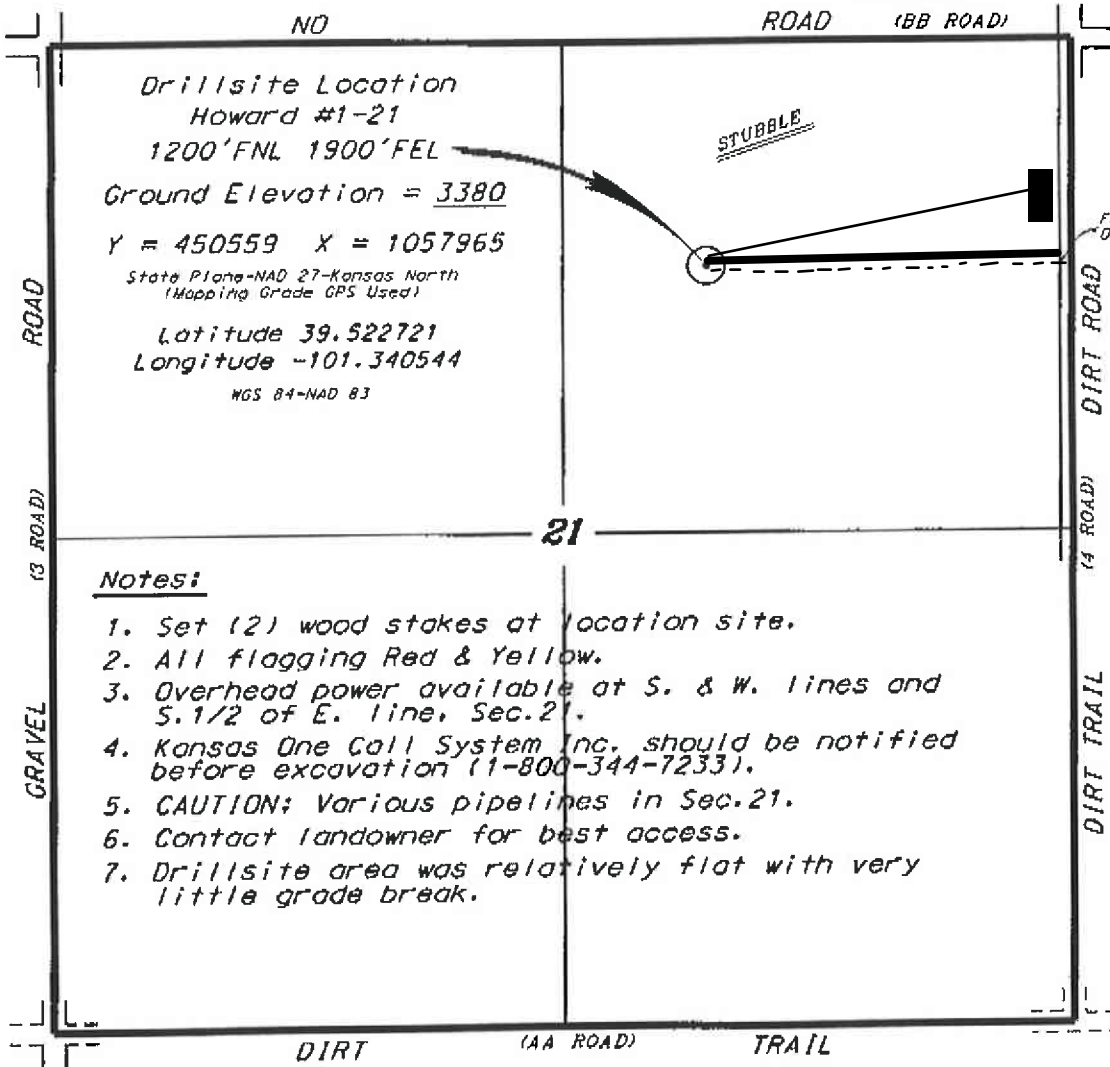 NO ROAD (BB ROAD)
Drillsite Location
Howard #1-21
1200'FNL 1900'FEL
Ground Elevation = 3380
Y = 450559 X = 1057965
State Plane-NAD 27-Kansas North
(Mapping Grade GPS Used)
Latitude 39.522721
Longitude -101.340544
WGS 84-NAD 83
STUBBLE
F
O
GRAVEL (3 ROAD) ROAD
DIRT ROAD
(4 ROAD)
DIRT TRAIL
21
Notes:
1. Set (2) wood stakes at location site.
2. All flagging Red & Yellow.
3. Overhead power available at S. & W. lines and
S.1/2 of E. line, Sec.21.
4. Kansas One Call System Inc. should be notified
before excavation (1-800-344-7233).
5. CAUTION: Various pipelines in Sec.21.
6. Contact landowner for best access.
7. Drillsite area was relatively flat with very
little grade break.
DIRT (AA ROAD) TRAIL